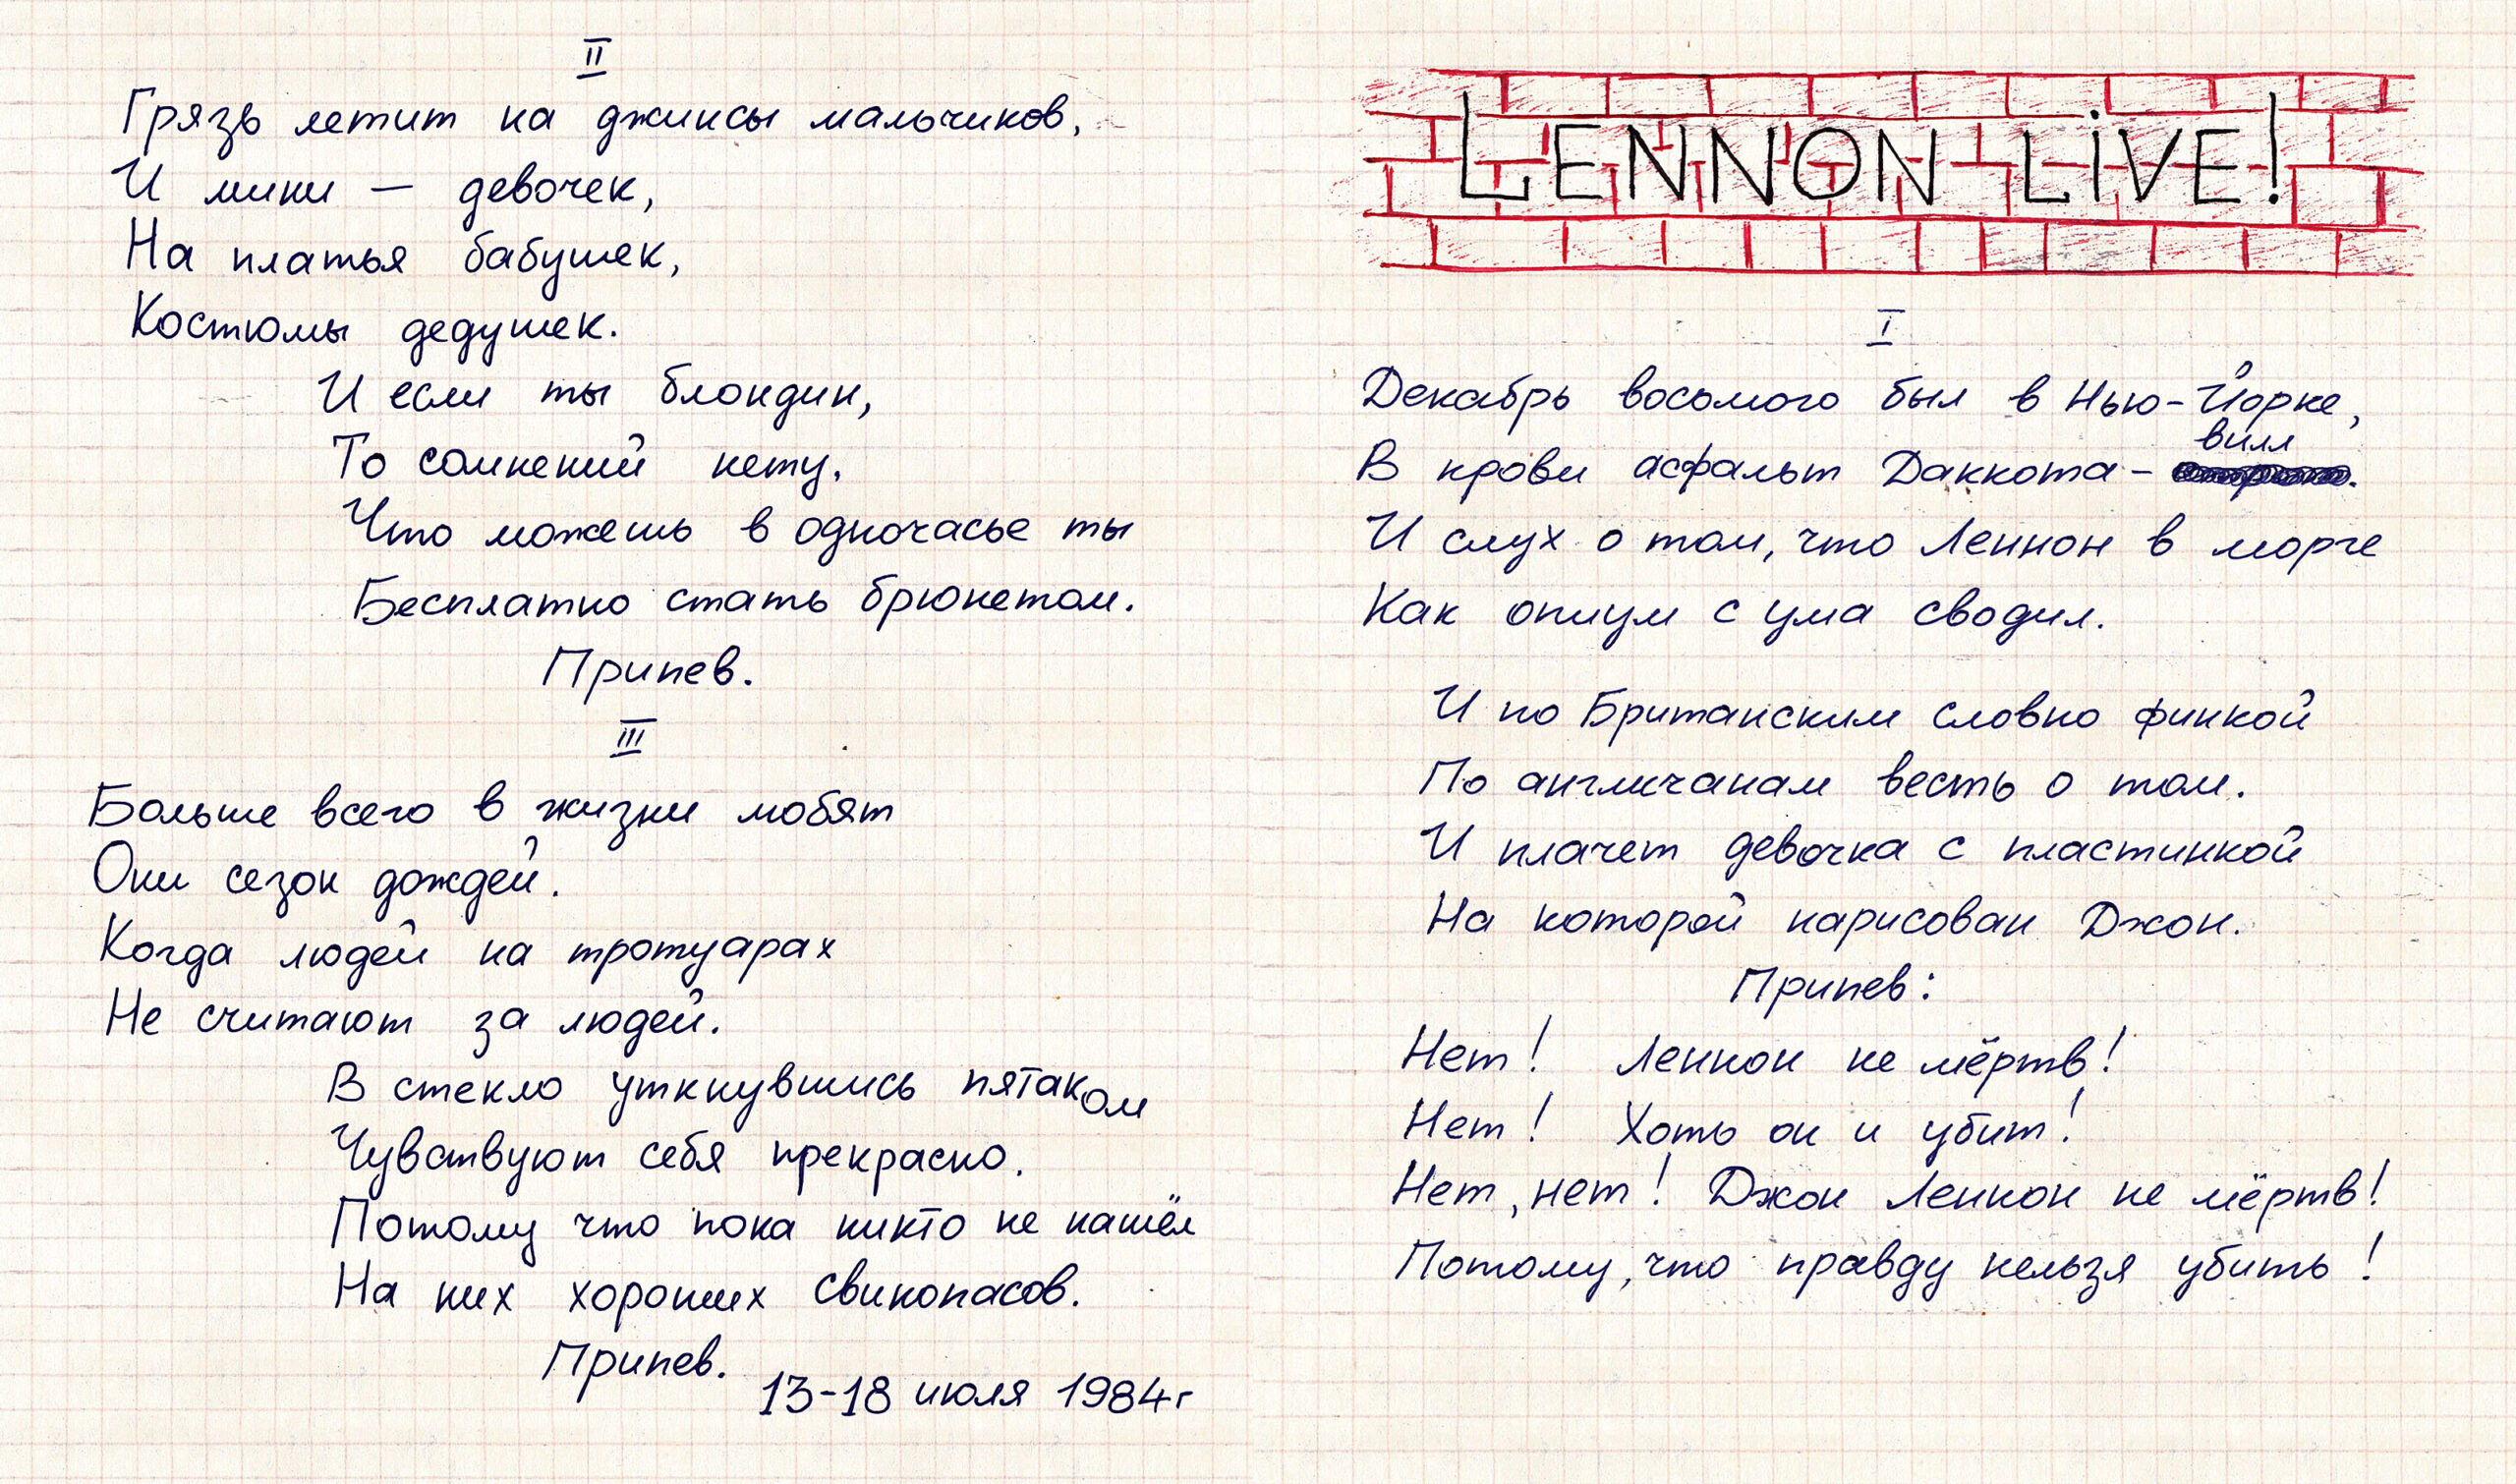 II
Грязь летит на джинсы мальчиков,
И мини — девочек,
На платья бабушек,
Костюмы дедушек.
И если ты блондин,
То сомнений нету.
Что можешь в одночасье ты
Бесплатно стать брюнетом.
Припев.
III
Больше всего в жизни любят
Они сезон дождей.
Когда людей на тротуарах
Не считают за людей.
В стекло уткнувшись пятаком
Чувствуют себя прекрасно.
Потому что пока никто не нашёл
На них хороших свинопасов.
Припев.
13-18 июля 1984г
LENNON LiVE!
I
Декабрь восьмого был в Нью-Йорке,
В крови асфальт Даккота - вилл.
И слух о том, что Леннон в морге
Как опиум с ума сводил.
И по Британским словно финкой
По англичанам весть о том.
И плачет девочка с пластинкой
На которой нарисован Джон.
Припев:
Нет! Леннон не мёртв!
Нет! Хоть он и убит!
Нет, нет! Джон Леннон не мёртв!
Потому, что правду нельзя убить!